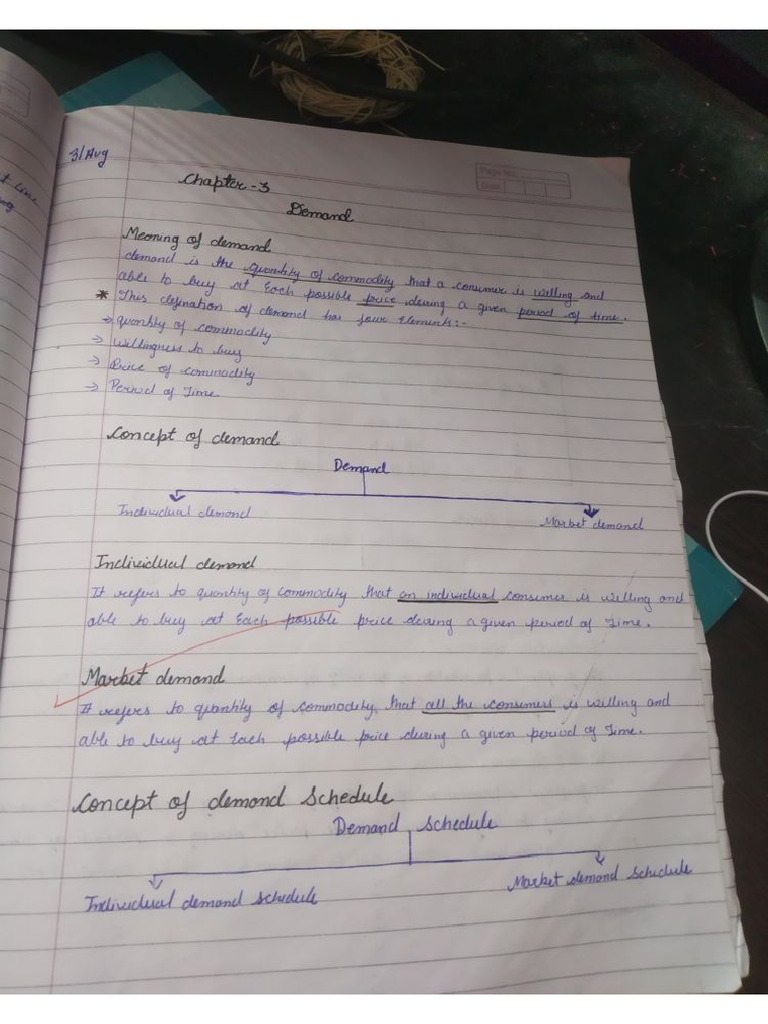 3/Aug
Page No.
Date
Chapter-3
Demand
Meaning of demand
demand is the quantity of commodity that a consumer is willing and
able to buy at Each possible price during a given period of time.
* This defination of demand has four Elements:-
→ quantity of commodity
→ Willingness to buy
→ Price of commodity
→ Period of Time
Concept of demand
Demand
Individual demand
Market demand
Individual demand
It refers to quantity of commodity that an individual consumer is willing and
able to buy at Each possible price during a given period of Time.
Market demand
It refers to quantity of commodity, that all the consumers is willing and
able to buy at Each possible price during a given period of Time.
Concept of demand Schedule
Demand Schedule
Individual demand Schedule
Market demand Schedule